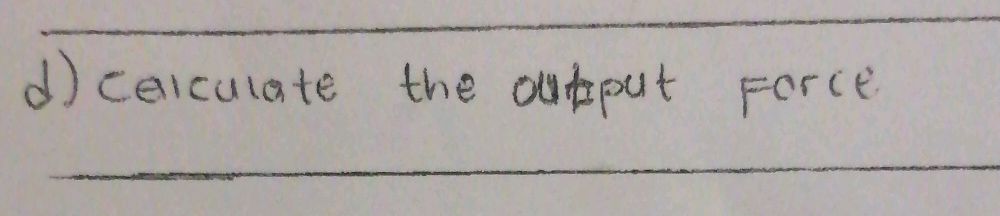 d) Calculate the output Force